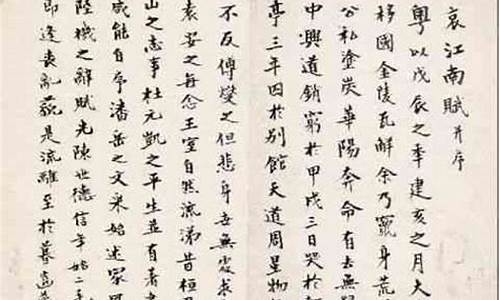 哀江南賦 并序
粵以戊辰之年建亥之月大
移國金陵瓦解余乃竄身荒
公私塗炭華陽奔命有去無
中興道銷窮於甲戌三日哭於
亭三年囚於別館天道周星物
不反傅燮之但悲身世無處求
袁安之每念王室自然流涕昔桓
山之志事杜元凱之平生並有著
咸能自序潘岳之文采始述家風
陸機之辭賦先陳世德信年始二
即逢喪亂藐是流離至於暮